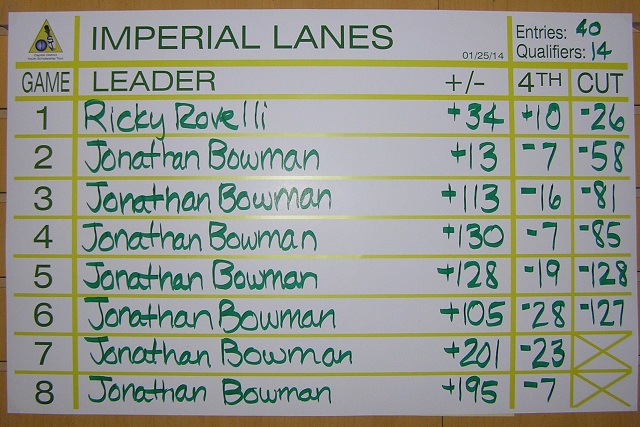 IMPERIAL LANES
01/25/14
Entries: 40
Qualifiers: 14
GAME LEADER +/- 4TH CUT
1 Ricky Rovelli +34 +10 -26
2 Jonathan Bowman +13 -7 -58
3 Jonathan Bowman +113 -16 -81
4 Jonathan Bowman +130 -7 -85
5 Jonathan Bowman +128 -19 -128
6 Jonathan Bowman +105 -28 -127
7 Jonathan Bowman +201 -23
8 Jonathan Bowman +195 -7